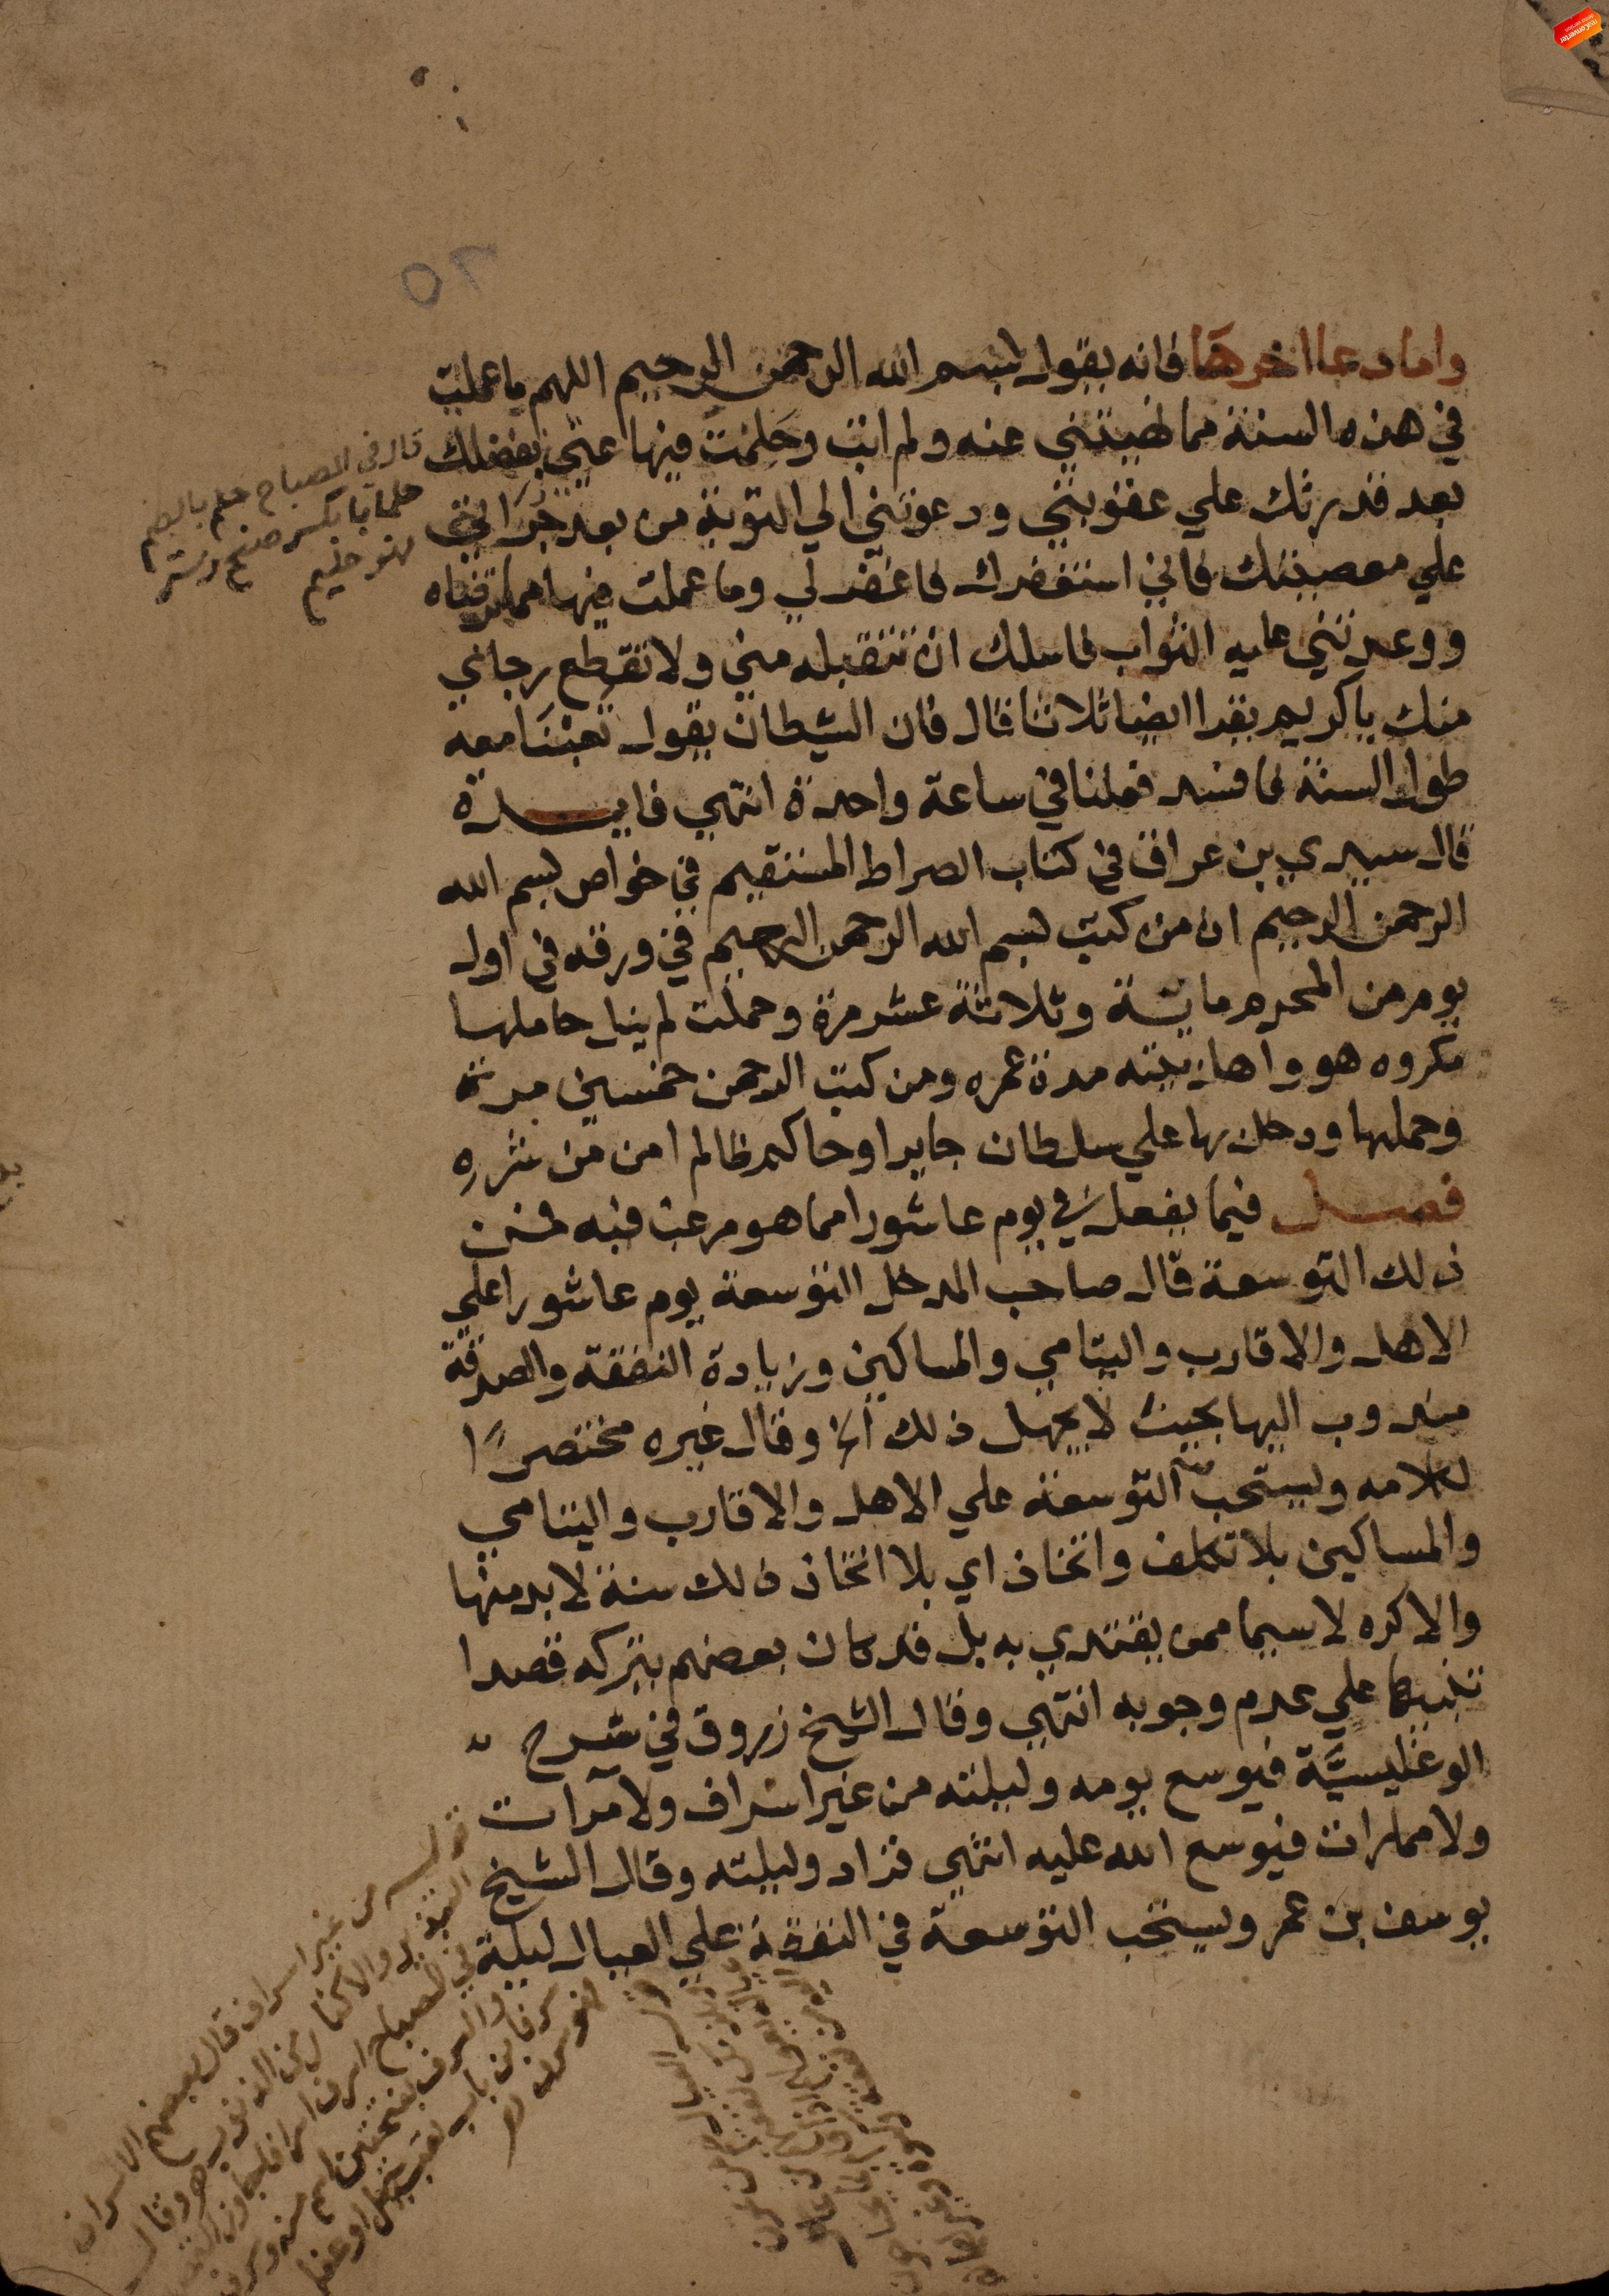 واما دعا اخرها فانه يقول بسم الله الرحمن الرحيم اللهم ما عملت
في هذه السنة مما نهيتني عنه ولم اتب وحلمت فيها عني بفضلك
بعد قدرتك علي عقوبتي ودعوتني الي التوبة من بعد جراتي
علي معصيتك فاني استغفرك فاغفر لي وما عملت فيها مما ترضاه
ووعدتني عليه الثواب فاسلك ان تتقبله مني ولا تقطع رجاي
منك ياكريم يقرا ايضا ثلاثا قال فان الشيطان يقول تعبنا معه
طول السنة فافسد فعلنا في ساعة واحدة انتهي فايدة
قال سيدي بن عراق في كتاب الصراط المستقيم في خواص بسم الله
الرحمن الرحيم ان من كتب بسم الله الرحمن الرحيم في ورقه في اول
يوم من المحرم ماية وثلاثة عشر مرة وحملت لم ينل حاملها
مكروه هو واهل بيته مدة عمره ومن كتب الرحمن خمسين مرة
وحملها ودخل بها علي سلطان جاير او حاكم ظالم امن من شره
فصل فيما يفعل في يوم عاشورا مما هو مرغب فيه فمن
ذلك التوسعة قال صاحب المدخل التوسعة يوم عاشورا علي
الاهل والاقارب واليتامي والمساكين وزيادة النفقة والصدقة
مندوب اليها بحيث لا يجهل ذلك الخ وقال غيره مختصرًا
لكلامه ويستحب التوسعة علي الاهل والاقارب واليتامي
والمساكين بلا تكلف واتخاذ اي بلا اتخاذ ذلك سنة لا بد منها
والا كره لا سيما ممن يقتدي به بل قد كان بعضهم يتركه قصدا
تنبيها علي عدم وجوبه انتهي وقال الشيخ زروق في شرح
الوغليسيَّة فيوسع يومه وليلته من غير اسراف ولا مرآت
ولا ممارات فيوسع الله عليه انتهي فزاد وليلته وقال الشيخ
يوسف بن عمر ويستحب التوسعة في النفقة علي العيال ليلة
قال في المصباح حلم بالضم
حلما بالكسر صفح وستر
فهو حليم
قوله من غير اسراف قال بعضهم الاسراف
التبذير والاكثار من الذنوب هـ وقال
في المصباح اسرف اسرافا جاوز القصد
والسرف بفتحتين اسم منه وسرف
سرفا من باب تعب جهل او غفل
فهو سرف هـ